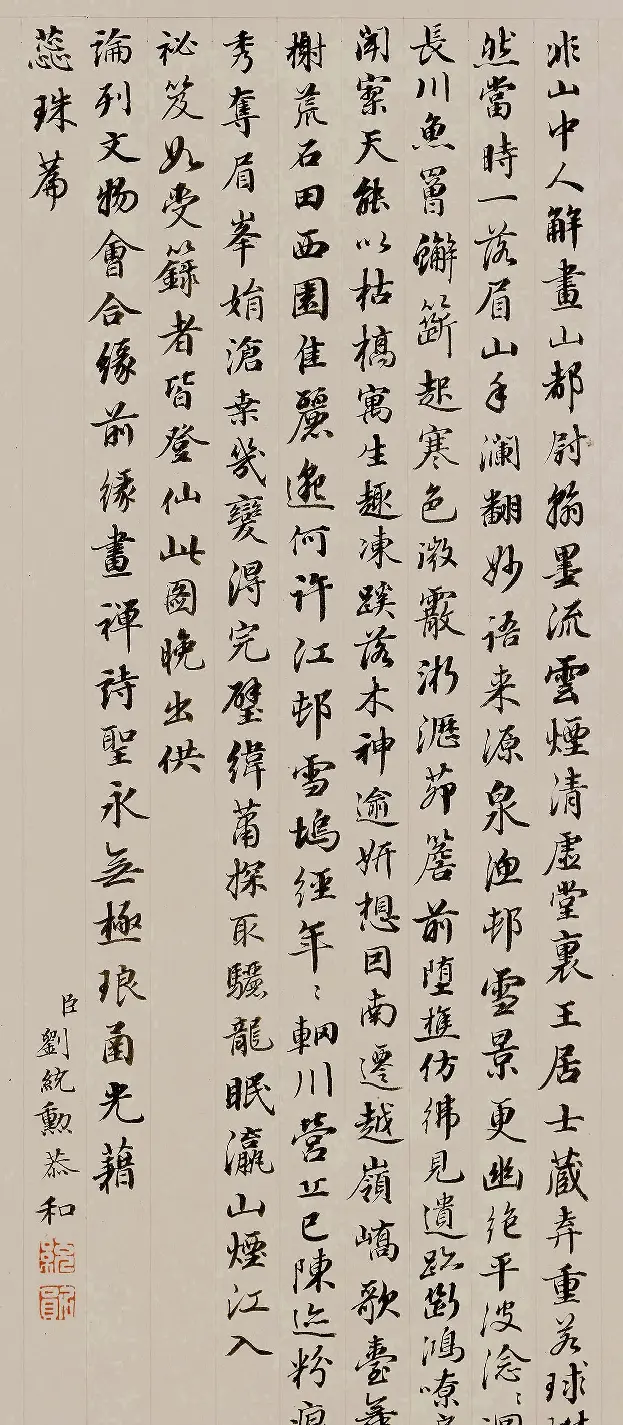 非山中人解畫山都尉翰墨流雲煙清虛堂裏王居士藏弆重若球
然當時一落眉山手瀾翻妙語来源泉漁邨雪景更幽絶平波淰〻
長川魚罾蠏籪起寒色微霰淅瀝茆簷前墮樵仿彿見遺跡斷鴻嘹
閒寀天能以枯槁寓生趣凍蹊落木神逾妍想因南遷越嶺嶠歌臺
榭荒石田西園佳麗邈何許江邨雪塢經年〻輞川營丘已陳迹粉
秀奪眉峯娟滄桒幾變得完璧緯蕭探取驪龍眠瀛山煙江入
祕笈如受籙者皆登仙此圖晚出供
論列文物會合緣前緣畫禪詩聖永無極琅函光藉
蕊珠篇
臣劉統勲恭和